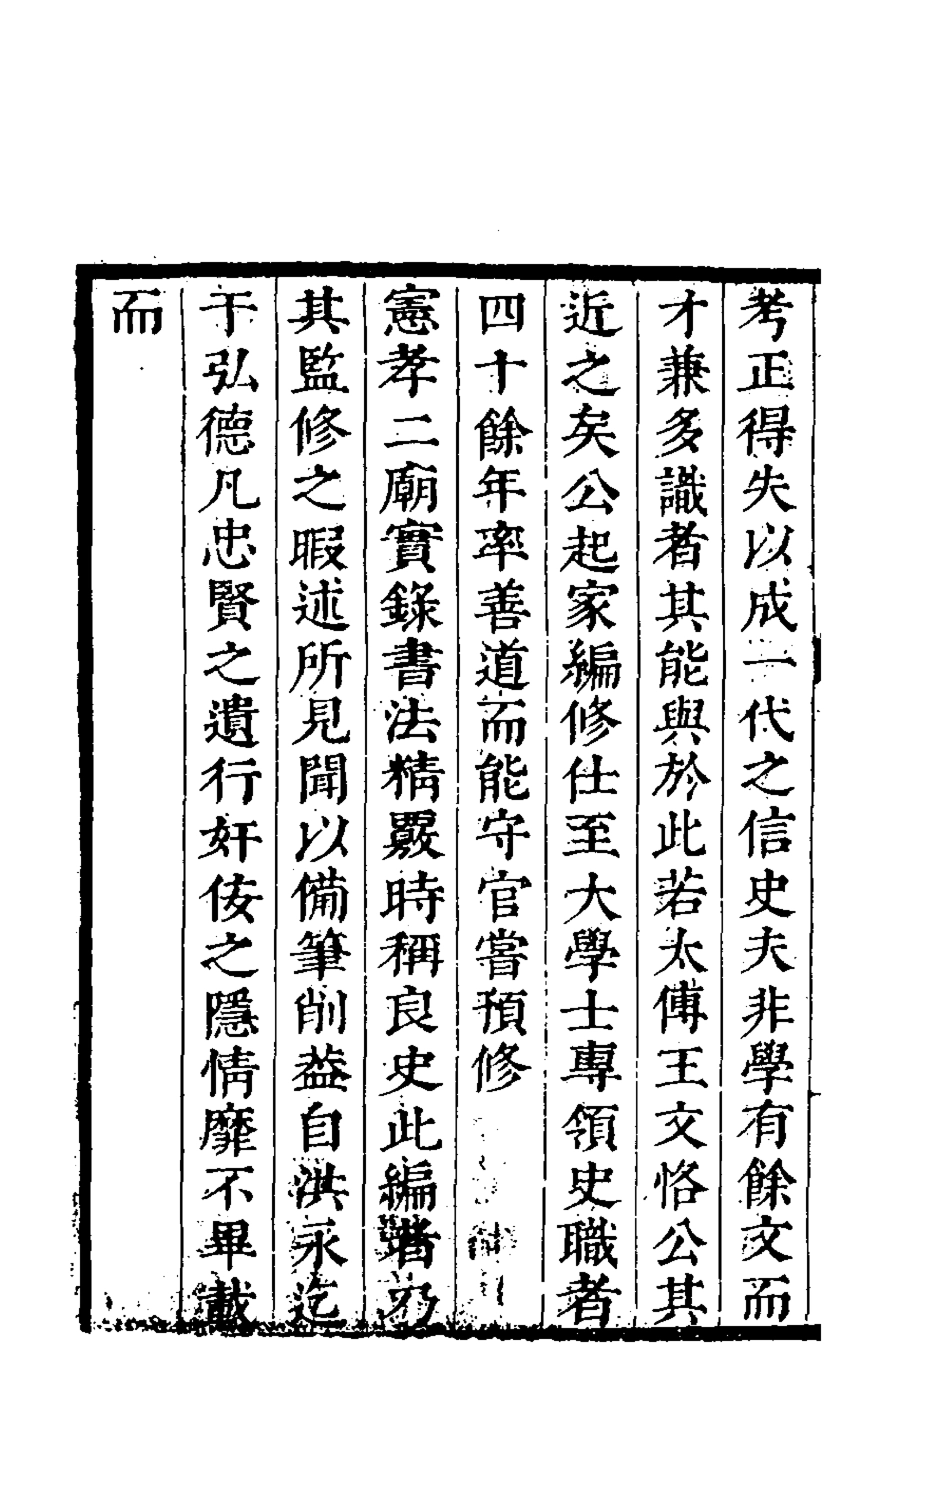 考正得失以成一代之信史夫非學有餘文而
才兼多識者其能與於此若太傅王文恪公其
近之矣公起家編修仕至大學士專領史職者
四十餘年率善道而能守官嘗預修
憲孝二廟實錄書法精覈時稱良史此編者乃
其監修之暇述所見聞以備筆削葢自洪永迄
于弘德凡忠賢之遺行奸佞之隱情靡不畢載
而